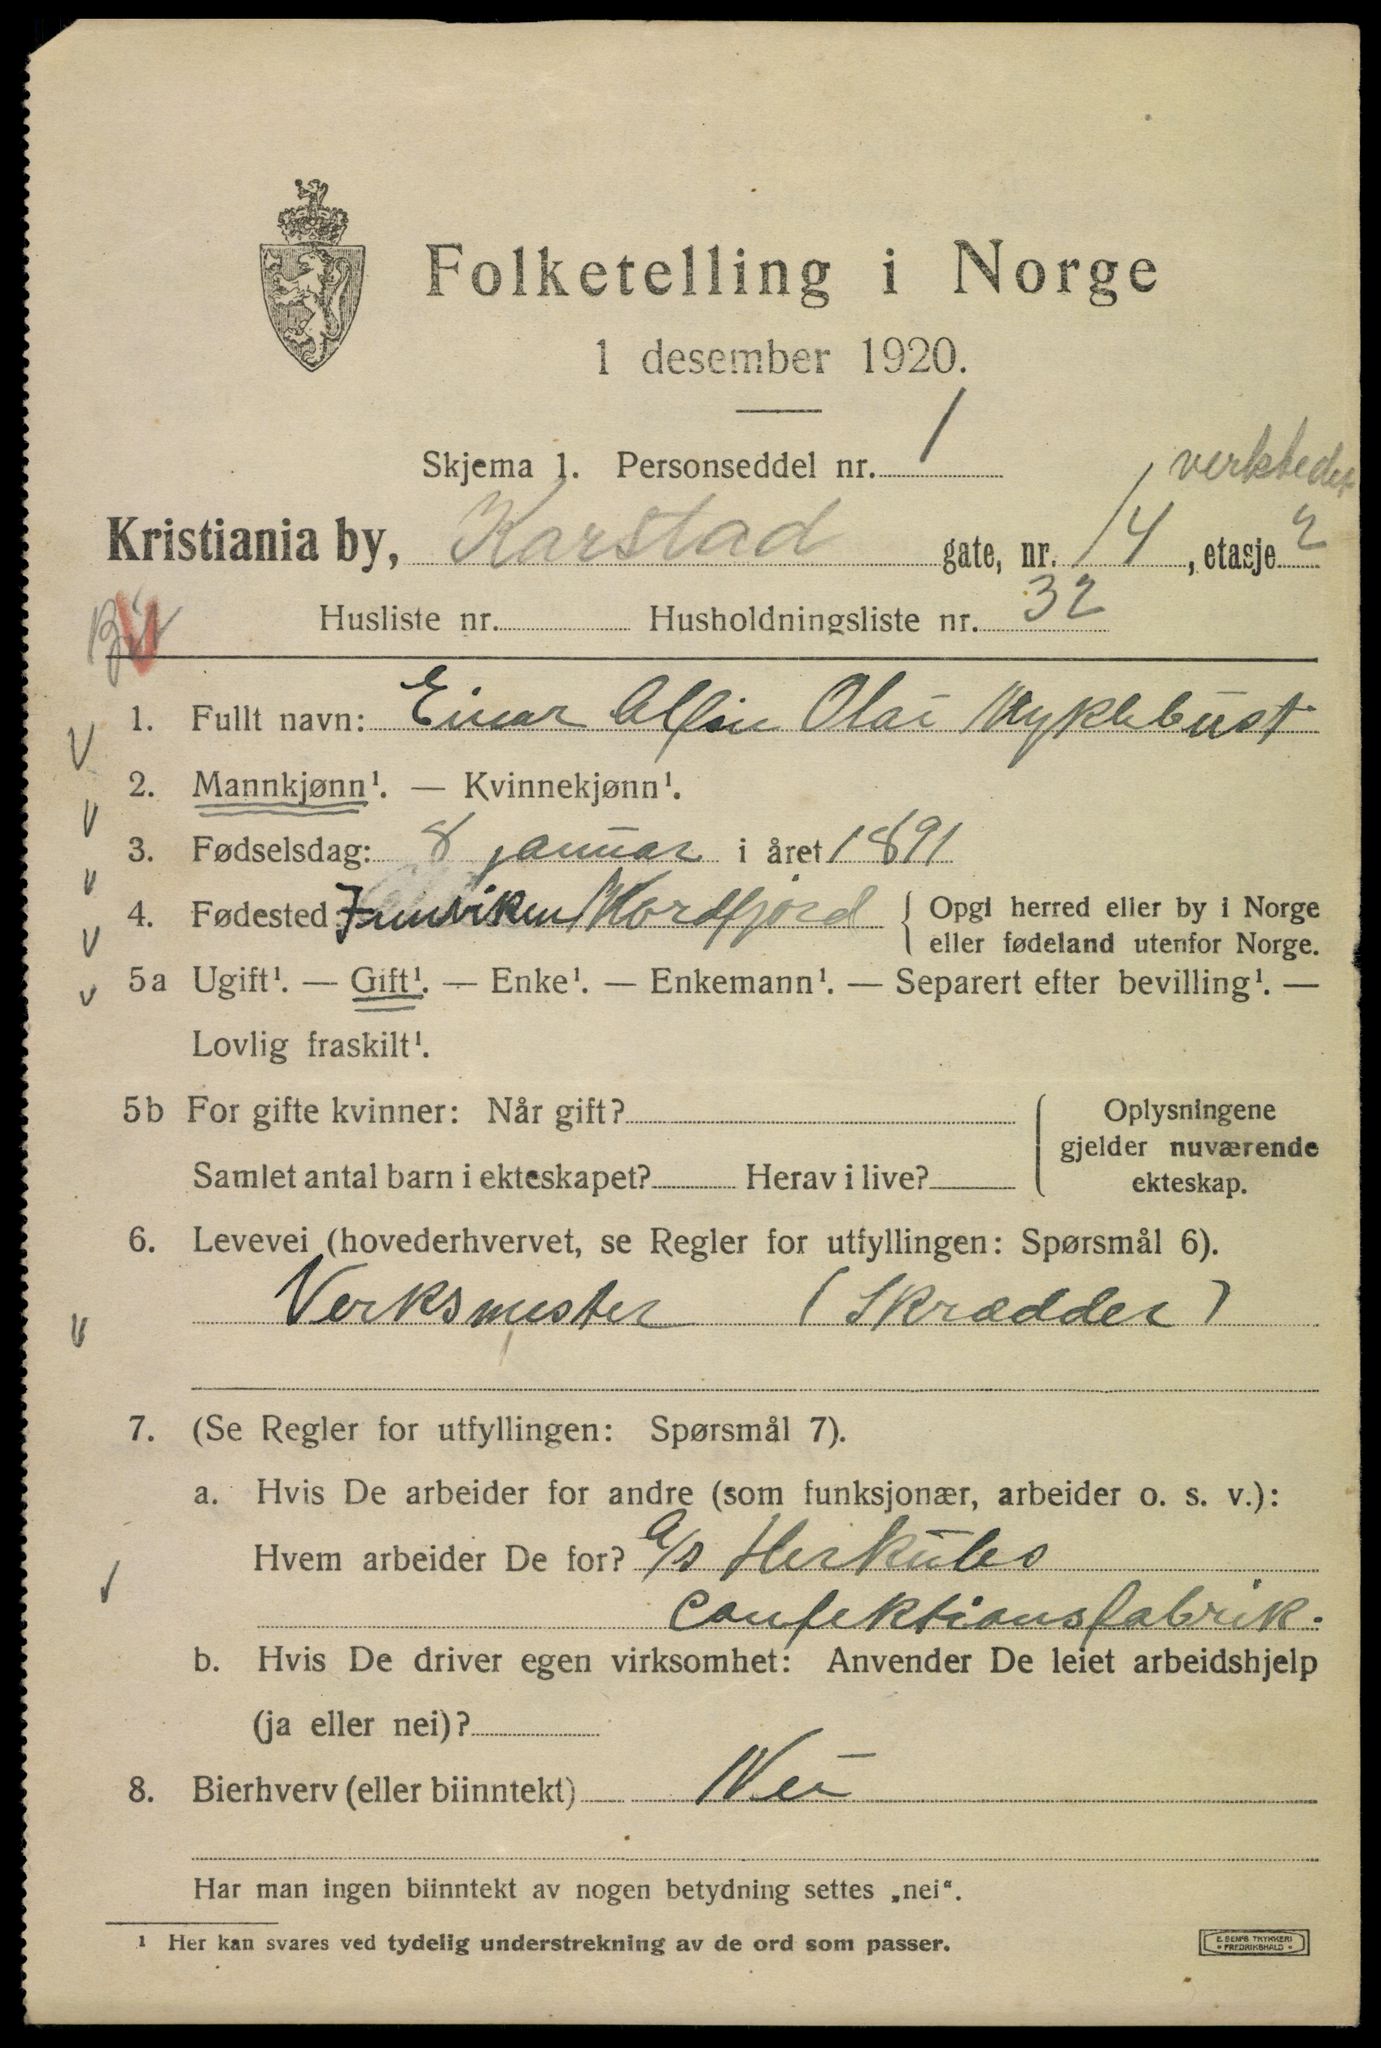 Folketelling i Norge
1 desember 1920.
Skjema 1. Personseddel nr. 1
verksteder
Kristiania by, Karstad gate, nr. 14, etasje 2
Husliste nr. Husholdningsliste nr. 32
1. Fullt navn: Einar Alfin Olai Myklebust
2. Mannkjønn¹. — Kvinnekjønn¹.
3. Fødselsdag: 8 januar i året 1891
4. Fødested Innviken Nordfjord { Opgi herred eller by i Norge
eller fødeland utenfor Norge.
5a Ugift¹. — Gift¹. — Enke¹. — Enkemann¹. — Separert efter bevilling¹. —
Lovlig fraskilt¹.
5b For gifte kvinner: Når gift? { Oplysningene
gjelder nuværende
Samlet antal barn i ekteskapet? Herav i live? ekteskap.
6. Levevei (hovederhvervet, se Regler for utfyllingen: Spørsmål 6).
Verksmester (Skrædder)
7. (Se Regler for utfyllingen: Spørsmål 7).
a. Hvis De arbeider for andre (som funksjonær, arbeider o. s. v.):
Hvem arbeider De for? a/s Herkules
Confektionsfabrik.
b. Hvis De driver egen virksomhet: Anvender De leiet arbeidshjelp
(ja eller nei)?
8. Bierhverv (eller biinntekt) Nei
Har man ingen biinntekt av nogen betydning settes „nei“.
¹ Her kan svares ved tydelig understrekning av de ord som passer.
E. SEM'S TRYKKERI
• FREDRIKSHALD •